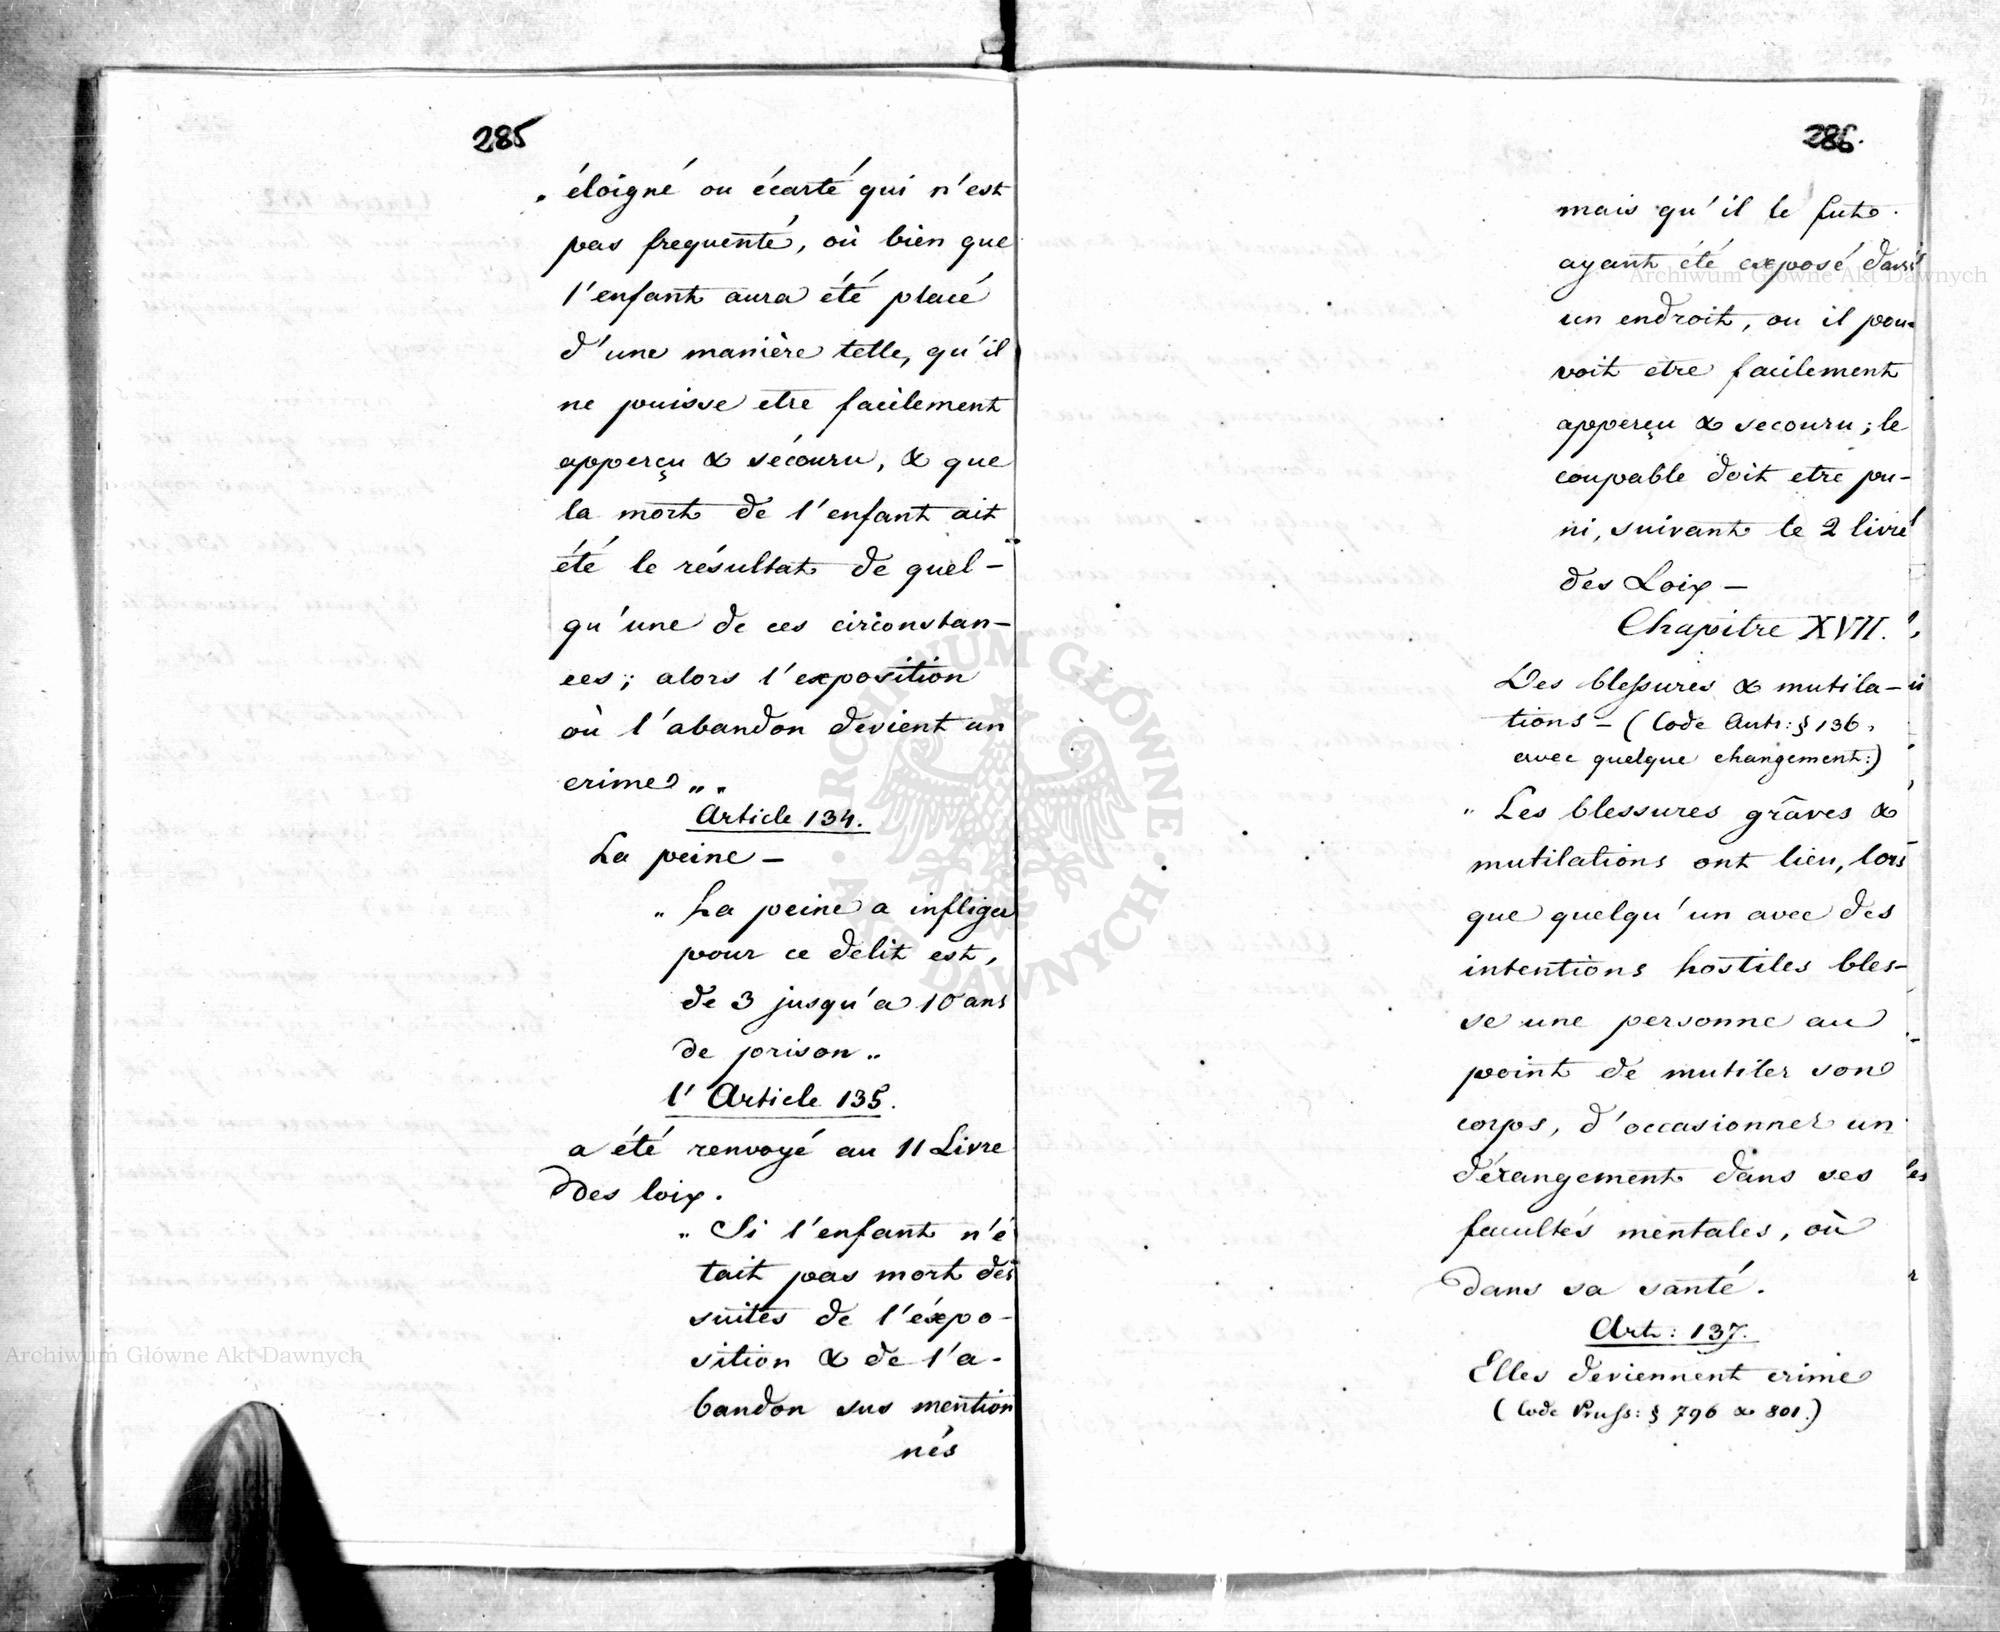 285
„ éloigné ou écarté qui n'est
pas frequenté, où bien que
l'enfant aura été placé
d'une manière telle, qu'il
ne puisse etre facilement
apperçu & sécouru, & que
la mort de l'enfant ait
été le résultat de quel-
qu'une de ces circonstan-
ces; alors l'exposition
où l'abandon devient un
crime „ „
Article 134.
La peine —
„ La peine a infliger
pour ce delit est,
de 3 jusqu'a 10 ans
de prison „
l'Article 135.
a été renvoyé au 11 Livre
des loix.
„ Si l'enfant n'é
tait pas mort des
suites de l'éxpo-
sition & de l'a-
bandon sus mention
nés
286.
mais qu'il le fut
ayant été exposé dans
un endroit, ou il pou-
voit etre facilement
apperçu & secouru; le
coupable doit etre pu-
ni, suivant le 2 livre
des Loix —
Chapitre XVII.
Des blessures & mutila-
tions — (Code Autr: § 136,
avec quelque changement:)
„ Les blessures grâves &
mutilations ont lieu, lors
que quelqu'un avec des
intentions hostiles bles-
se une personne au
point de mutiler son
corps, d'occasionner un
dérangement dans ses
facultés mentales, où
dans sa santé.
Art: 137.
Elles deviennent crime
(Code Pruss: § 796 & 801.)
Archiwum Główne Akt Dawnych
Archiwum Główne Akt Dawnych
ARCHIWUM GŁÓWNE AKT DAWNYCH